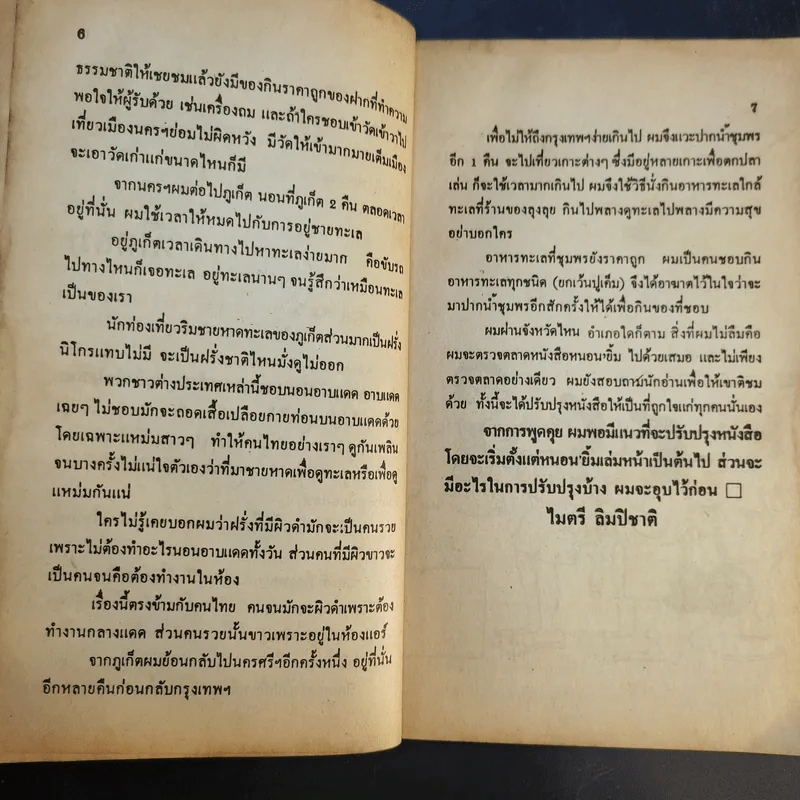 6
ธรรมชาติให้เชยชมแล้วยังมีของกินราคาถูกของฝากที่ทำความ
พอใจให้ผู้รับด้วย เช่นเครื่องถม และถ้าใครชอบเข้าวัดเข้าวาไป
เที่ยวเมืองนครฯย่อมไม่ผิดหวัง มีวัดให้เข้ามากมายเต็มเมือง
จะเอาวัดเก่าแก่ขนาดไหนก็มี
จากนครฯผมต่อไปภูเก็ต นอนที่ภูเก็ต 2 คืน ตลอดเวลา
อยู่ที่นั่น ผมใช้เวลาให้หมดไปกับการอยู่ชายทะเล
อยู่ภูเก็ตเวลาเดินทางไปหาทะเลง่ายมาก คือขับรถ
ไปทางไหนก็เจอทะเล อยู่ทะเลนานๆ จนรู้สึกว่าเหมือนทะเล
เป็นของเรา
นักท่องเที่ยวริมชายหาดทะเลของภูเก็ตส่วนมากเป็นฝรั่ง
นิโกรแทบไม่มี จะเป็นฝรั่งชาติไหนมั่งดูไม่ออก
พวกชาวต่างประเทศเหล่านี้ชอบนอนอาบแดด อาบแดด
เฉยๆ ไม่ชอบมักจะถอดเสื้อเปลือยกายท่อนบนอาบแดดด้วย
โดยเฉพาะแหม่มสาวๆ ทำให้คนไทยอย่างเราๆ ดูกันเพลิน
จนบางครั้งไม่แน่ใจตัวเองว่าที่มาชายหาดเพื่อดูทะเลหรือเพื่อดู
แหม่มกันแน่
ใครไม่รู้เคยบอกผมว่าฝรั่งที่มีผิวดำมักจะเป็นคนรวย
เพราะไม่ต้องทำอะไรนอนอาบแดดทั้งวัน ส่วนคนที่มีผิวขาวจะ
เป็นคนจนคือต้องทำงานในห้อง
เรื่องนี้ตรงข้ามกับคนไทย คนจนมักจะผิวดำเพราะต้อง
ทำงานกลางแดด ส่วนคนรวยนั้นขาวเพราะอยู่ในห้องแอร์
จากภูเก็ตผมย้อนกลับไปนครศรีฯอีกครั้งหนึ่ง อยู่ที่นั่น
อีกหลายคืนก่อนกลับกรุงเทพฯ
7
เพื่อไม่ให้ถึงกรุงเทพฯง่ายเกินไป ผมจึงแวะปากน้ำชุมพร
อีก 1 คืน จะไปเที่ยวเกาะต่างๆ ซึ่งมีอยู่หลายเกาะเพื่อตกปลา
เล่น ก็จะใช้เวลามากเกินไป ผมจึงใช้วิธีนั่งกินอาหารทะเลใกล้
ทะเลที่ร้านของลุงลุย กินไปพลางดูทะเลไปพลางมีความสุข
อย่าบอกใคร
อาหารทะเลที่ชุมพรยังราคาถูก ผมเป็นคนชอบกิน
อาหารทะเลทุกชนิด (ยกเว้นปูเค็ม) จึงได้อาฆาตไว้ในใจว่าจะ
มาปากน้ำชุมพรอีกสักครั้งให้ได้เพื่อกินของที่ชอบ
ผมผ่านจังหวัดไหน อำเภอใดก็ตาม สิ่งที่ผมไม่ลืมคือ
ผมจะตรวจตลาดหนังสือหนอนยิ้ม ไปด้วยเสมอ และไม่เพียง
ตรวจตลาดอย่างเดียว ผมยังสอบถามนักอ่านเพื่อให้เขาติชม
ด้วย ทั้งนี้จะได้ปรับปรุงหนังสือให้เป็นที่ถูกใจแก่ทุกคนนั่นเอง
จากการพูดคุย ผมพอมีแนวที่จะปรับปรุงหนังสือ
โดยจะเริ่มตั้งแต่หนอนยิ้มเล่มหน้าเป็นต้นไป ส่วนจะ
มีอะไรในการปรับปรุงบ้าง ผมจะอุบไว้ก่อน □
ไมตรี ลิมปิชาติ